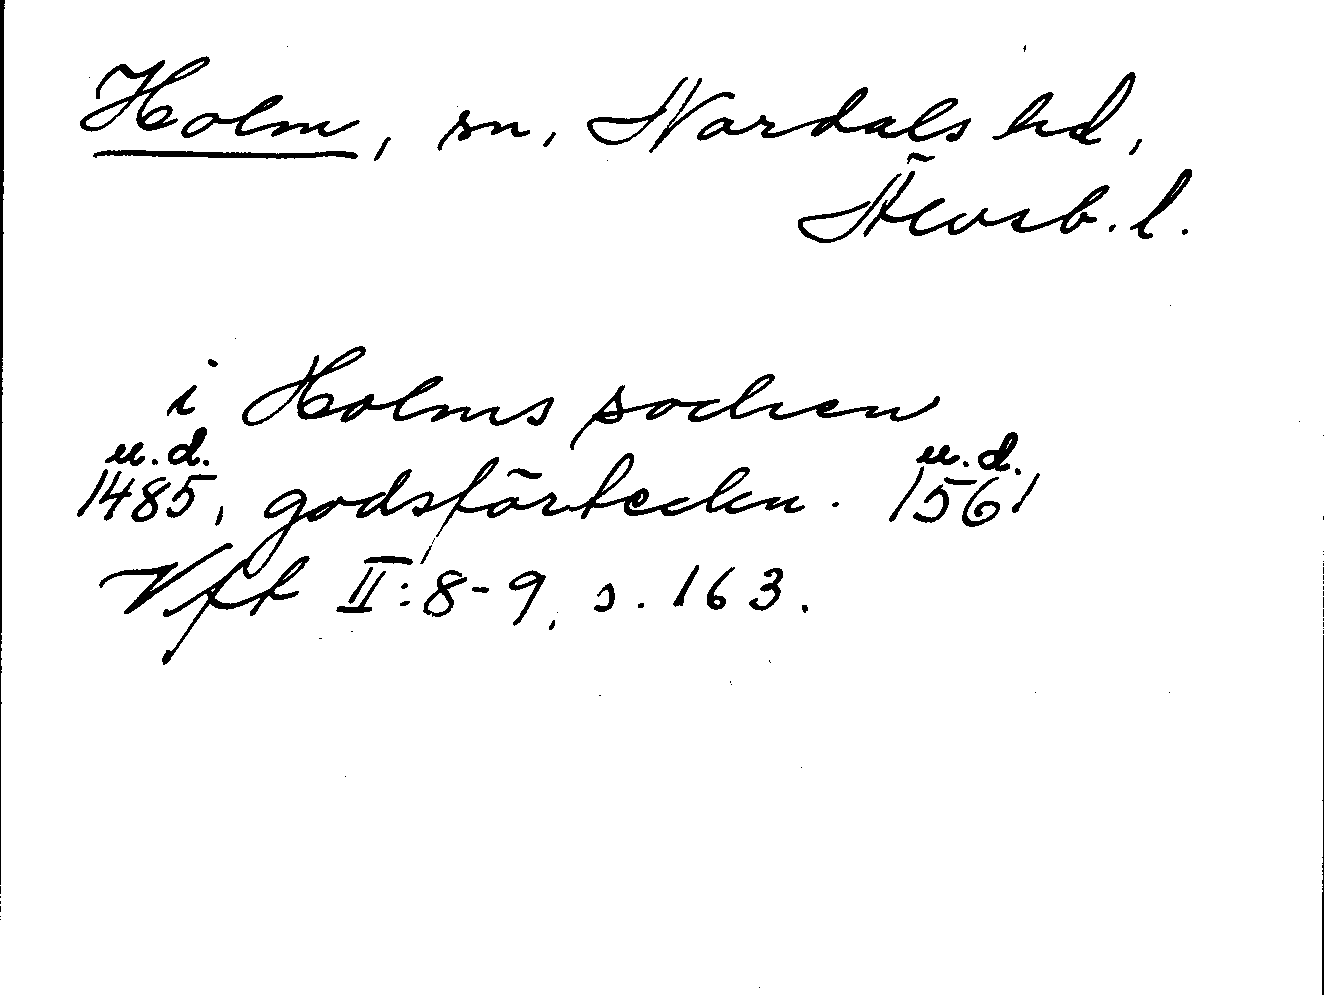 Holm, sn, Nordals hd,
Älvsb. l.
i Holms sochen
u.d. u.d.
1485, godsförteckn. 1561
Vft II:8-9, s. 163.